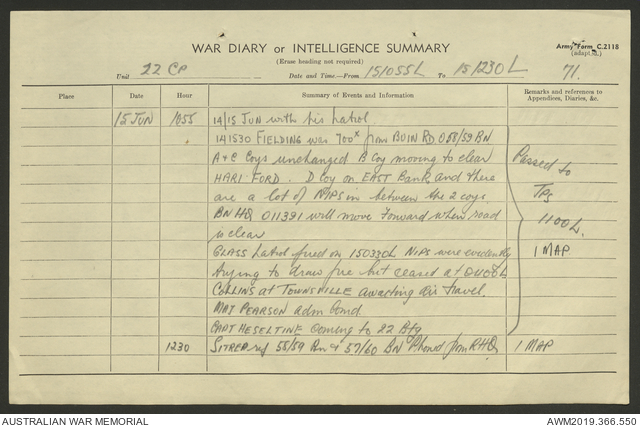 WAR DIARY or INTELLIGENCE SUMMARY
(Erase heading not required)
Army Form C.2118
(adapt.d.)
Unit 22 CP
Date and Time—From 15/055L To 15/1230L
71.
Place Date Hour Summary of Events and Information Remarks and references to Appendices, Diaries, &c.
15 JUN 1055 14/15 JUN with his patrol
141530 FIELDING was 700x from BUIN RD. 058/59 BN
A & C Coys unchanged B Coy moving to clear
HARI FORD. D Coy on EAST Bank and there
are a lot of NIPS in between the 2 coys.
BN HQ 011391 will move forward when road
is clear
GLASS patrol fired on 150330L NIPS were evidently
trying to draw fire but ceased at 0400L
COLLINS at TOWNSVILLE awaiting air travel.
MAJ PEARSON adm Cond.
CAPT HESELTINE coming to 22 Bty
Passed to
TPs
1100L.
1 MAP
1230 SITREP ref 58/59 Bn & 57/60 BN Phoned from RHQ 1 MAP
AUSTRALIAN WAR MEMORIAL
AWM2019.366.550